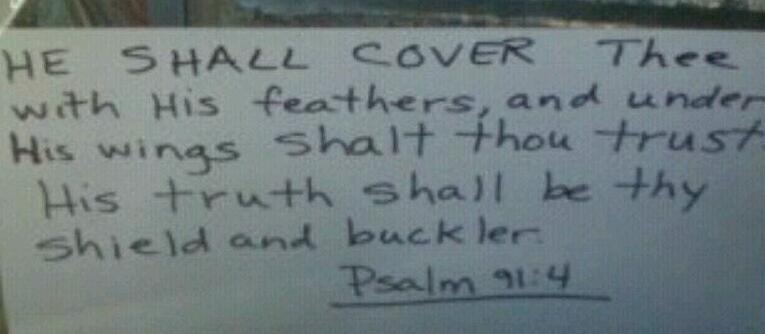 HE SHALL COVER Thee
with His feathers, and under
His wings shalt thou trust.
His truth shall be thy
shield and buckler.
Psalm 91:4